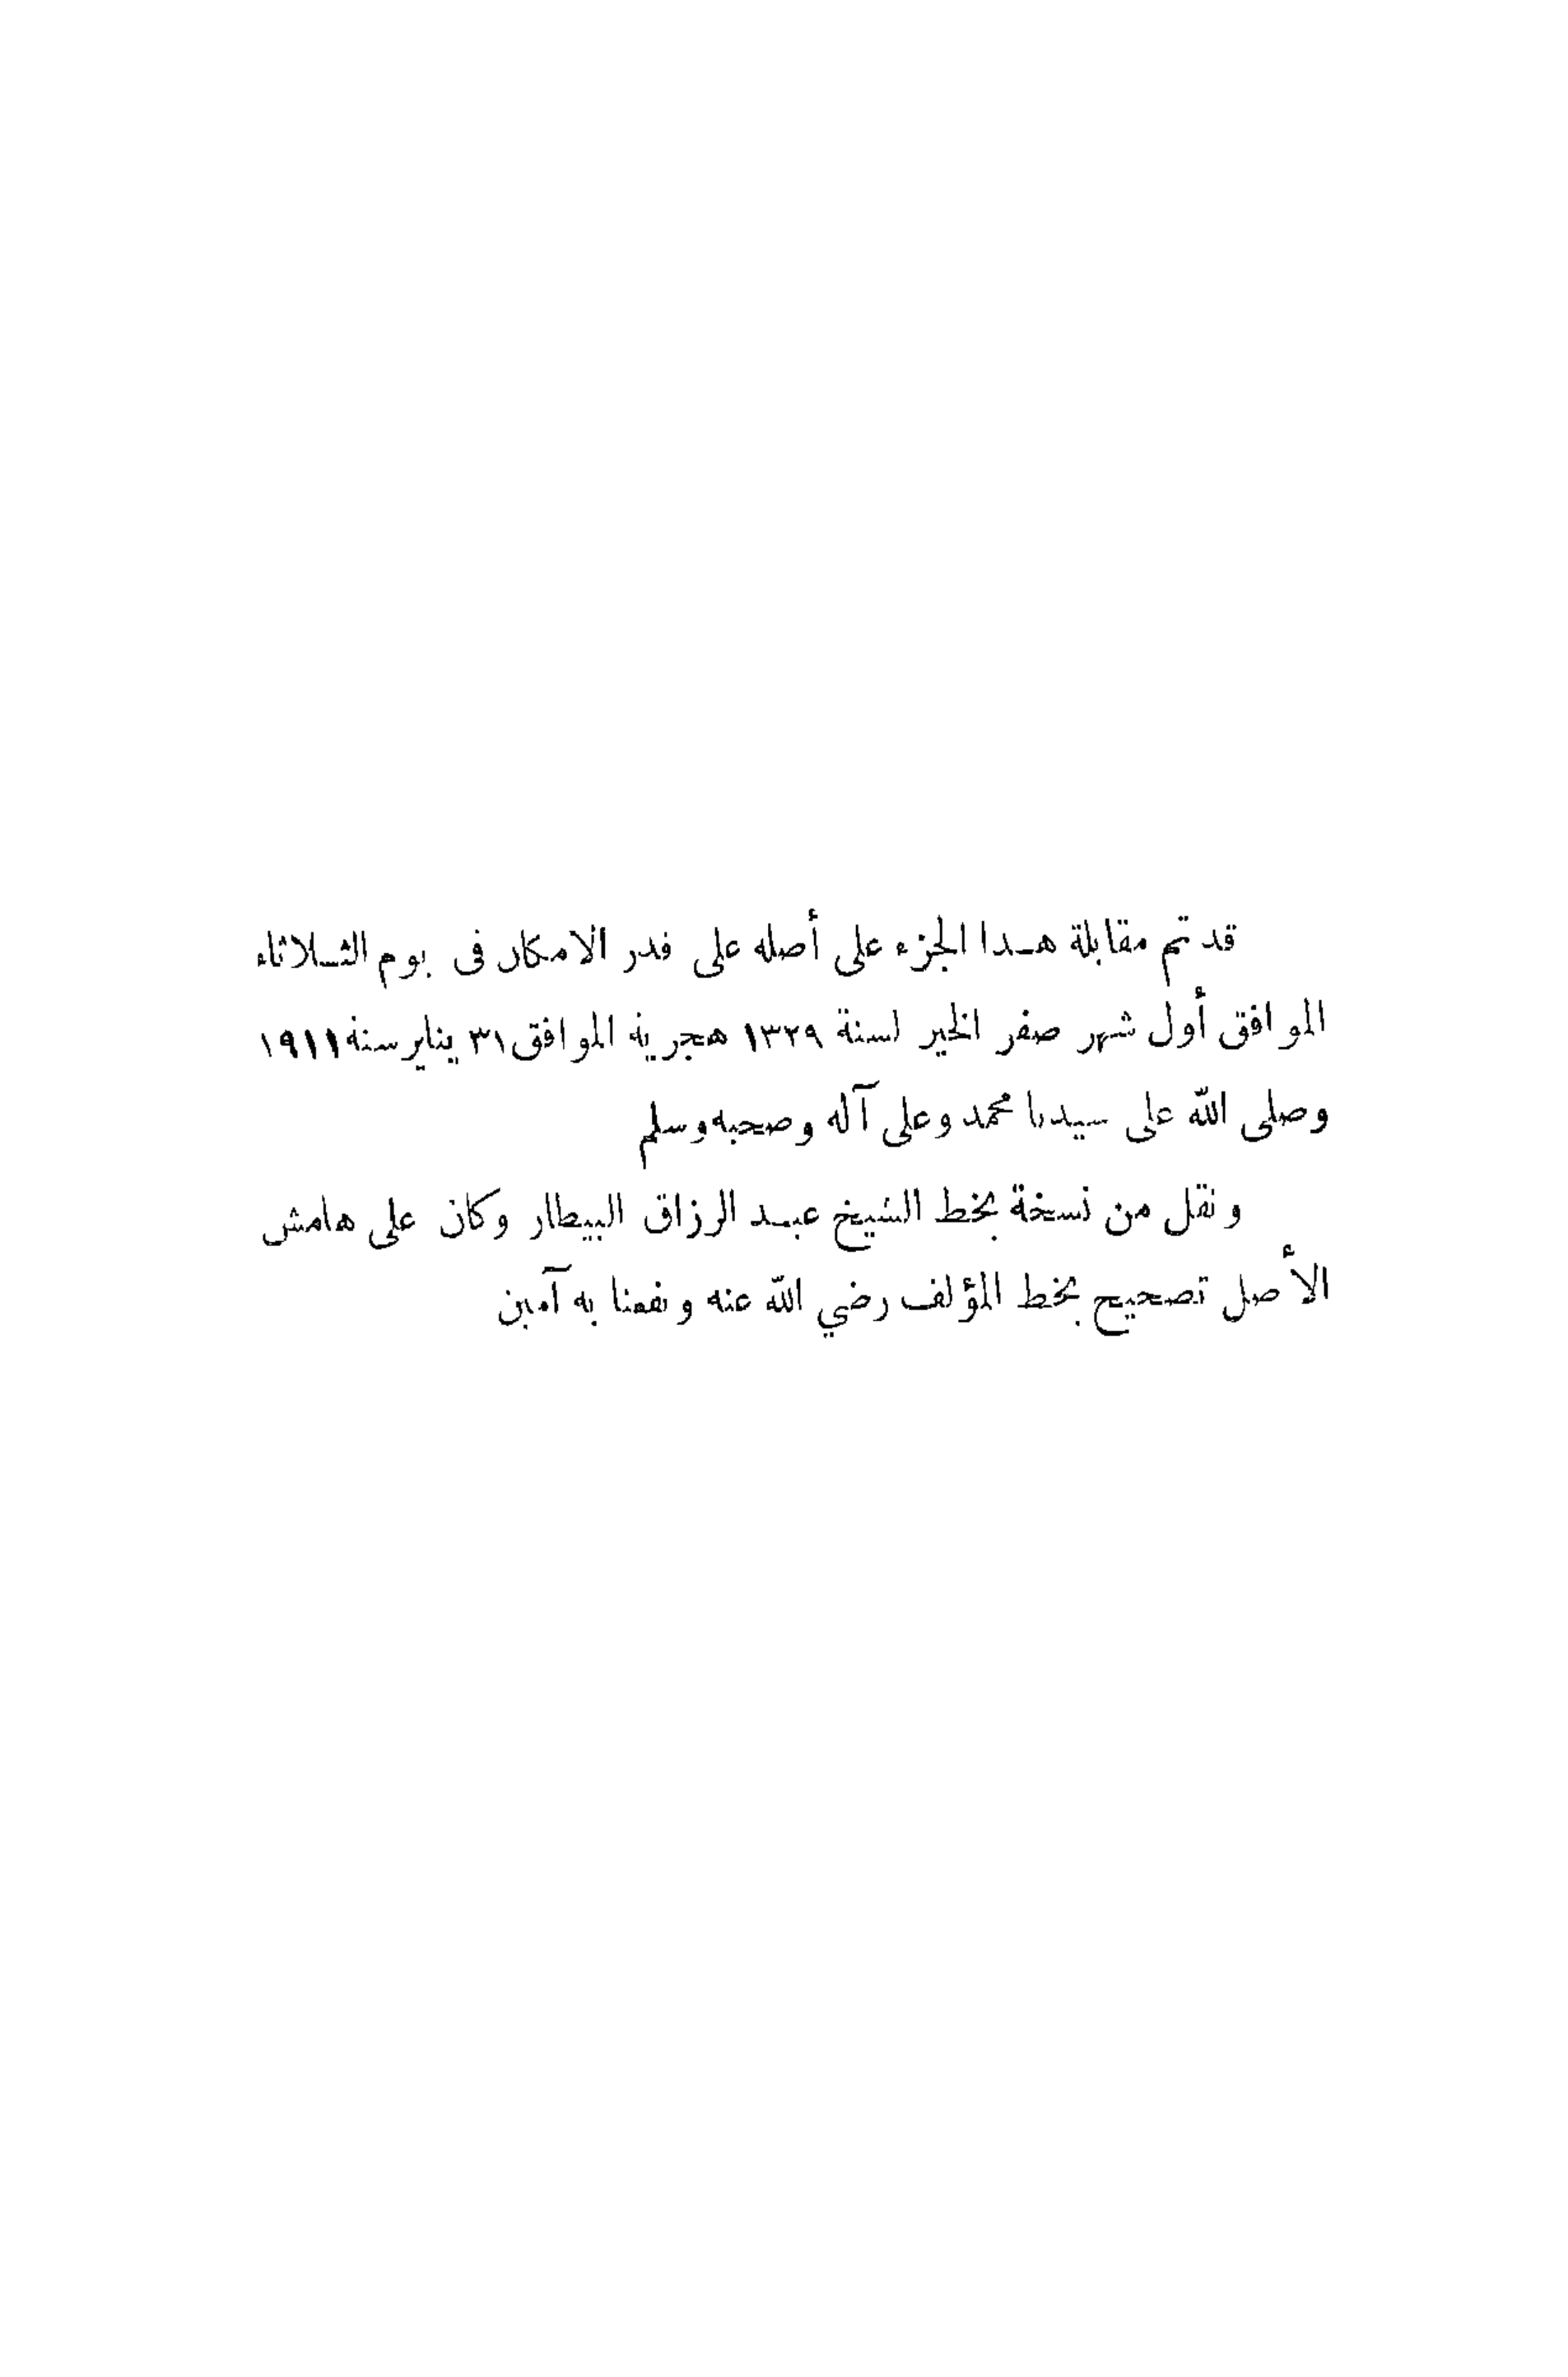 قد تم مقابلة هـذا الجزء على أصله على قدر الامكان فى يوم الثـلاثاء
الموافق أول شهر صفر الخير لسنة ١٣٢٩ هجرية الموافق ٣١ يناير سنة ١٩١١
وصلى الله على سيدنا محمد وعلى آله وصحبه وسلم
ونقل من نسخة بخط الشيخ عبـد الرزاق البيطار وكان على هامش
الأصل تصحيح بخط المؤلف رضي الله عنه ونفعنا به آمين